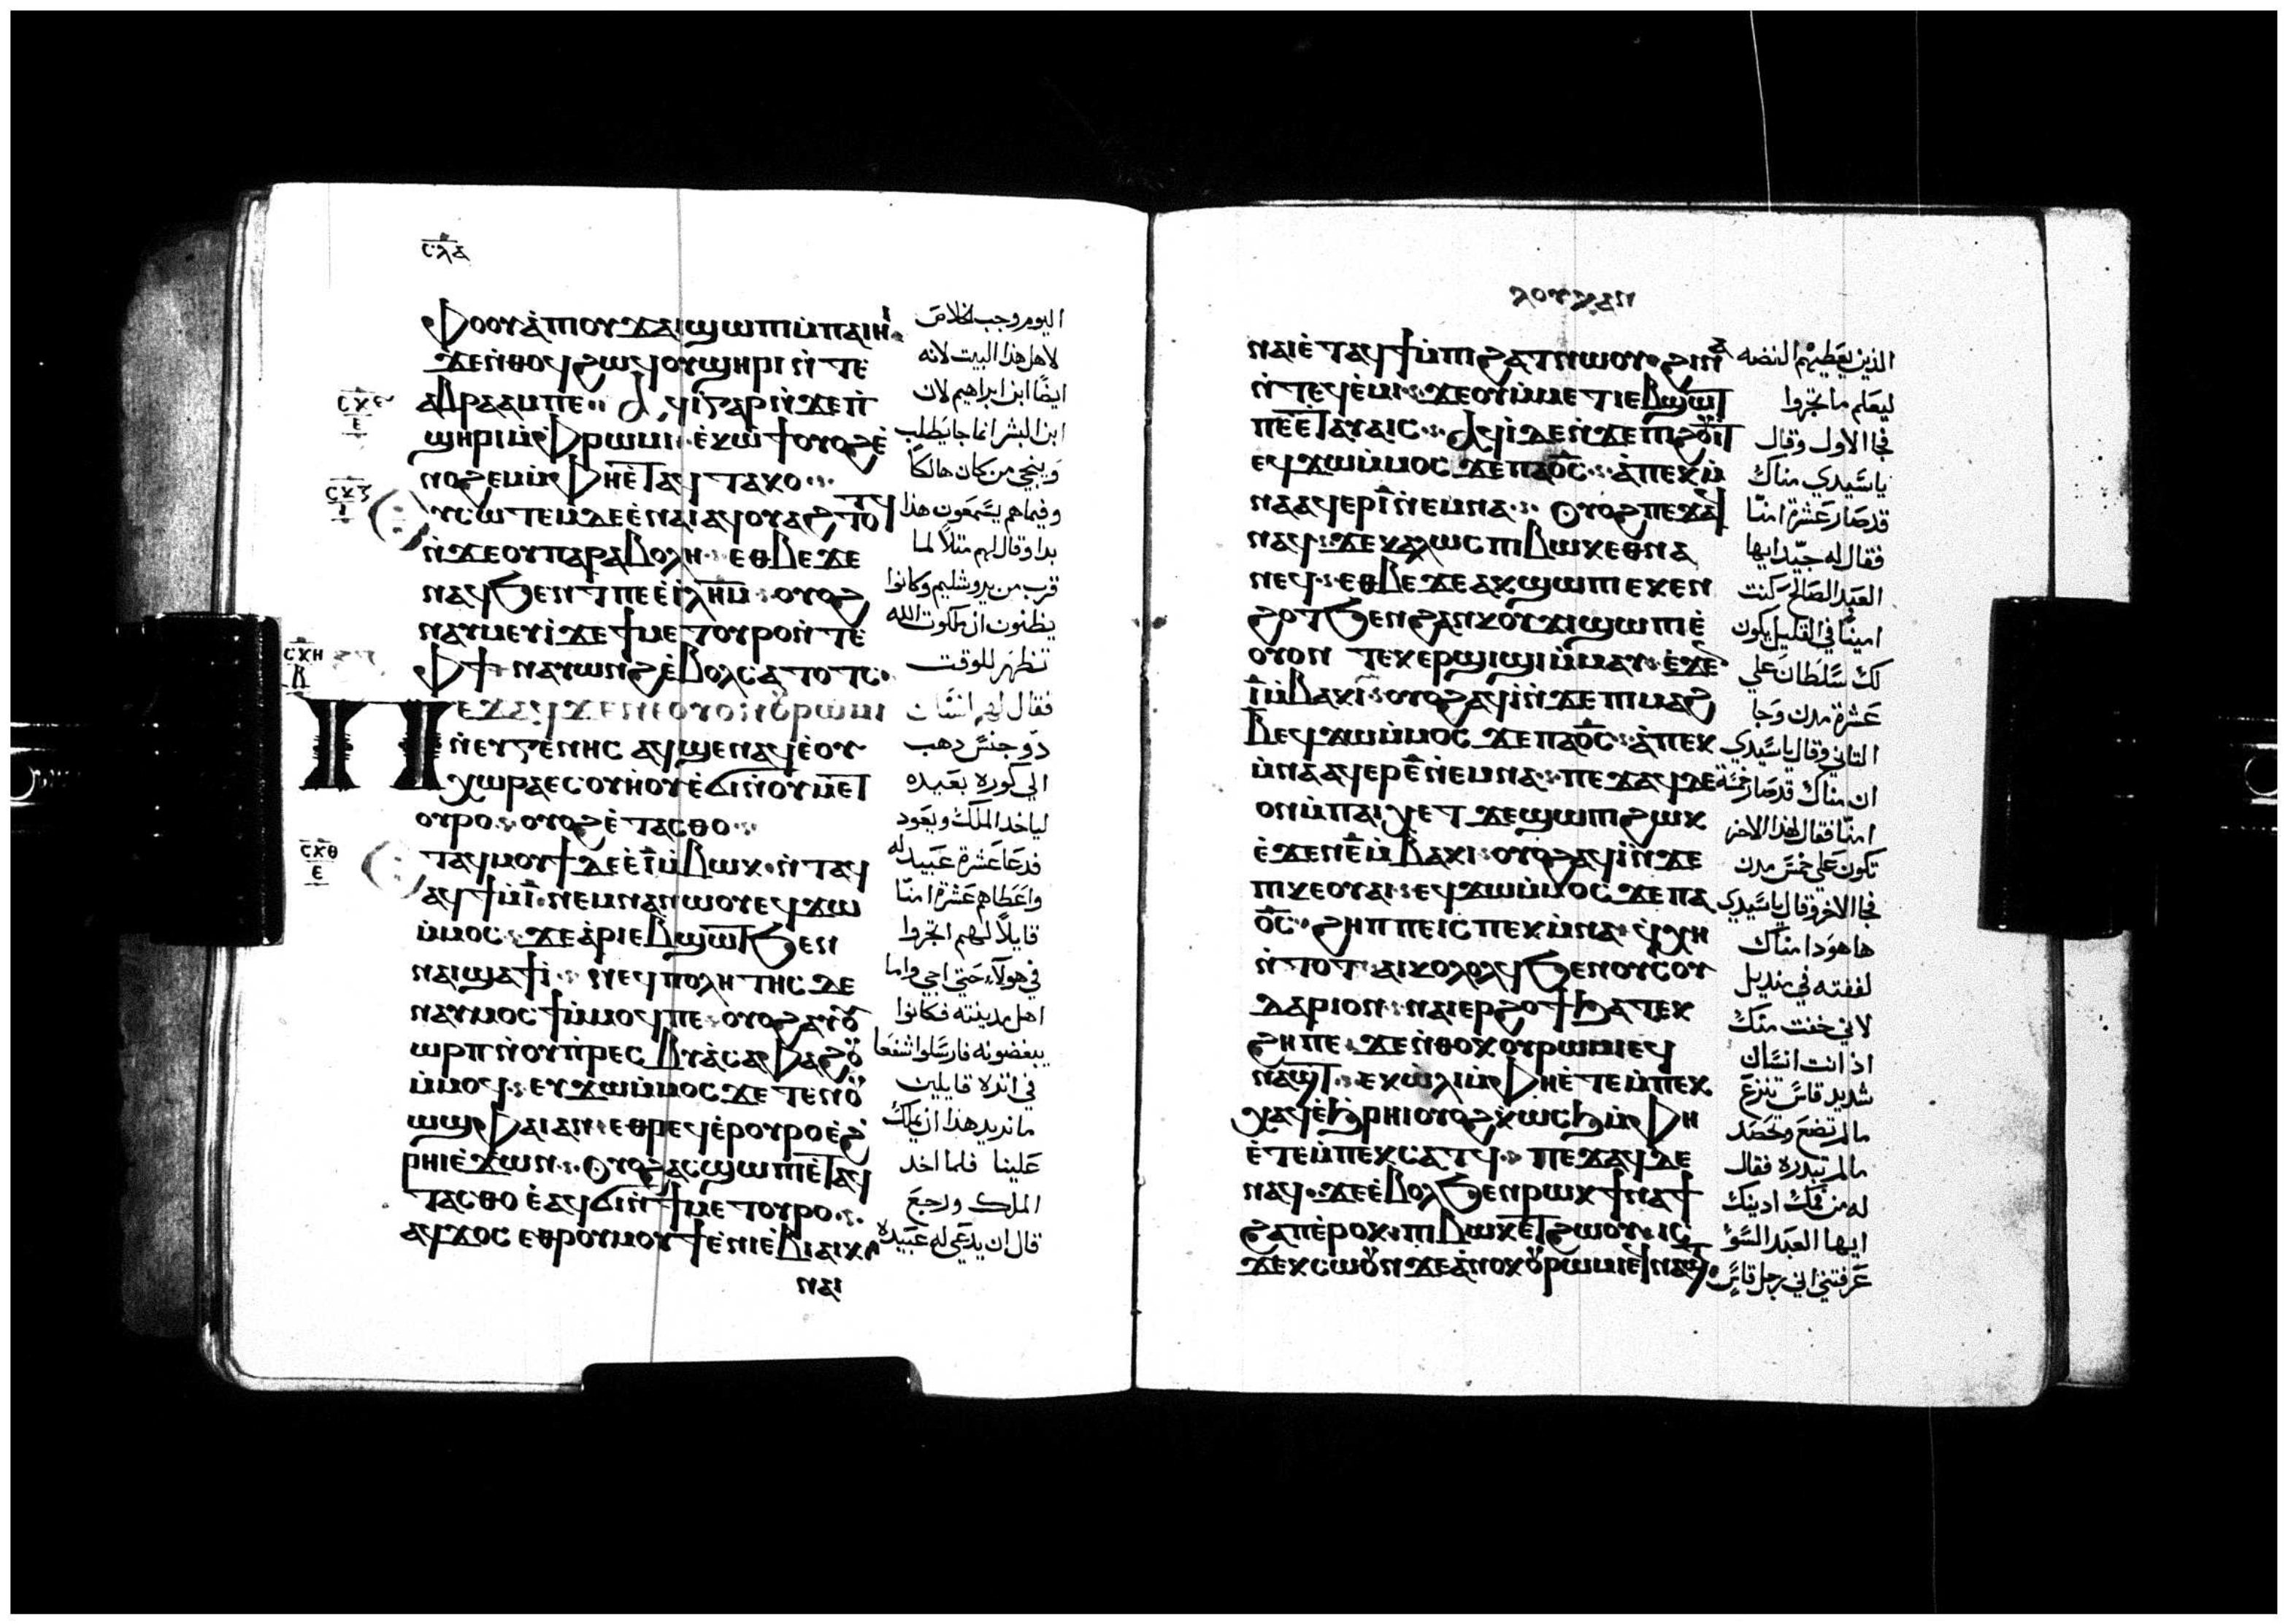 ⲥⲗⲁ
ⲫⲟⲟⲩ ⲁ̀ⲡⲟⲩϫⲁⲓ ϣⲱⲡⲓ ⲙ̀ⲡⲁⲓⲏⲓ
ϫⲉ ⲛ̀ⲑⲟϥ ϩⲱϥ ⲟⲩϣⲏⲣⲓ ⲛ̀ⲧⲉ
ⲁⲃⲣⲁⲁⲙ ⲡⲉ ⲁϥⲓ̀ ⲅⲁⲣ ⲛ̀ϫⲉ ⲡ̀
ϣⲏⲣⲓ ⲙ̀ⲫⲣⲱⲙⲓ ⲉ̀ⲕⲱϯ ⲟⲩⲟϩ ⲉ̀
ⲛⲟϩⲉⲙ ⲙ̀ⲫⲏ ⲉ̀ⲧⲁϥⲧⲁⲕⲟ
ⲩⲥⲱⲧⲉⲙ ⲇⲉ ⲉ̀ⲛⲁⲓ ⲁϥⲟⲩⲁϩⲧⲟⲧϥ
ⲛ̀ϫⲉ ⲟⲩⲡⲁⲣⲁⲃⲟⲗⲏ ⲉⲑⲃⲉ ϫⲉ
ⲛⲁϥϧⲉⲛⲧ ⲡⲉ ⲉ̀ⲓⲗⲏⲙ ⲟⲩⲟϩ
ⲛⲁⲩⲙⲉⲩⲓ̀ ϫⲉ ϯⲙⲉⲧⲟⲩⲣⲟ ⲛ̀ⲧⲉ
ⲫϯ ⲛⲁⲩⲱⲛϩ ⲉ̀ⲃⲟⲗ ⲥⲁⲧⲟⲧⲥ
ⲡⲉϫⲁϥ ϫⲉ ⲛⲉ ⲟⲩⲟⲛ ⲟⲩⲣⲱⲙⲓ
ⲛ̀ⲉⲩⲅⲉⲛⲏⲥ ⲁϥϣⲉⲛⲁϥ ⲉ̀ⲟⲩ
ⲭⲱⲣⲁ ⲉⲥⲟⲩⲏⲟⲩ ⲉ̀ϭⲓ ⲛ̀ⲟⲩⲙⲉⲧ
ⲟⲩⲣⲟ ⲟⲩⲟϩ ⲉ̀ⲧⲁⲥⲑⲟ
ⲧⲁϥⲙⲟⲩϯ ⲇⲉ ⲉ̀ⲓ̅ ⲙ̀ⲃⲱⲕ ⲛ̀ⲧⲁϥ
ⲁϥϯ ⲙ̀ⲓ̅ ⲛ̀ⲉⲙⲛⲁ ⲛⲱⲟⲩ ⲉϥϫⲱ
ⲙ̀ⲙⲟⲥ ϫⲉ ⲁ̀ⲣⲓⲉⲃϣⲱⲧ ϧⲉⲛ
ⲛⲁⲓ ϣⲁϯⲓ̀ ⲛⲉϥⲡⲟⲗⲏⲧⲏⲥ ⲇⲉ
ⲛⲁⲩⲙⲟⲥϯ ⲙ̀ⲙⲟϥ ⲡⲉ ⲟⲩⲟϩ ⲁⲩⲟⲩ
ⲱⲣⲡ ⲛ̀ⲟⲩⲡ̀ⲣⲉⲥⲃⲩⲁ̀ ⲥⲁⲫⲁϩⲟⲩ
ⲙ̀ⲙⲟϥ ⲉⲩϫⲱ ⲙ̀ⲙⲟⲥ ϫⲉ ⲧⲉⲛⲟⲩ
ⲱϣ ⲫⲁⲓ ⲁⲛ ⲉⲑⲣⲉϥⲉ̀ⲣⲟⲩⲣⲟ ⲉ̀ϩ
ⲣⲏⲓ ⲉ̀ϫⲱⲛ ⲟⲩⲟϩ ⲁⲥϣⲱⲡⲓ ⲉ̀ⲧⲁϥ
ⲧⲁⲥⲑⲟ ⲉ̀ⲁϥϭⲓ ⲛ̀ϯⲙⲉⲧⲟⲩⲣⲟ
ⲁϥϫⲟⲥ ⲉⲑⲣⲟⲩⲙⲟⲩϯ ⲉ̀ⲛⲓⲉ̀ⲃⲓⲁⲓⲕ
ⲛⲁⲓ
ⲥⲝⲏ
ⲥⲝⲑ
ⲉ
اليوم وجب الخلاص
لاهل هذا البيت لانه
ايضًا ابن ابراهيم لان
ابن البشر انما جا يطلب
وينجي من كان هالكًا
وفيماهم يسمعون هذا
بدا وقال لهم مثلاً لما
قرب من يروشليم وكانوا
يظنون ان ملكوت الله
تظهر للوقت
فقال لهم انسان
دو جنس دهب
الي كورة بعيده
لياخد الملك ويعود
فدعا عشرة عبيد له
واعطاهم عشرة امنّا
قايلاً لهم اتجروا
في هولآء حتي اجي واما
اهل مدينته فكانوا
يبغضونه فارسلوا شفعا
في اثره قايلين
مانريد هذا ان يملك
علينا فلما اخد
الملك ورجع
قال ان يدعي له عبيده
ⲗⲟⲩⲕⲁⲛ
ⲛⲁⲓ ⲉ̀ⲧⲁϥϯ ⲙ̀ⲡⲓϩⲁⲧ ⲛⲱⲟⲩ ϩⲓⲛⲁ
ⲛ̀ⲧⲉϥⲉ̀ⲙⲓ ϫⲉ ⲟⲩ ⲙ̀ⲙⲉⲧⲓⲉⲃϣⲱⲧ
ⲡⲉ ⲉ̀ⲧⲁⲩⲁⲓⲥ ⲁϥⲓ̀ ⲇⲉ ⲛ̀ϫⲉ ⲡⲓϩⲟⲩⲓⲧ
ⲉϥϫⲱ ⲙ̀ⲙⲟⲥ ϫⲉ ⲡⲁⲟ̅ⲥ̅ ⲁ̀ⲡⲉⲕⲙ̀
ⲛⲁ ⲁϥⲉⲣ ⲓ̅ ⲛ̀ⲉⲙⲛⲁ ⲟⲩⲟϩ ⲡⲉϫⲁϥ
ⲛⲁϥ ϫⲉ ⲕⲁⲗⲱⲥ ⲡⲓⲃⲱⲕ ⲉⲑⲛⲁ
ⲛⲉϥ ⲉⲑⲃⲉ ϫⲉ ⲁⲕϣⲱⲡⲓ ⲉⲕⲉⲛ
ϩⲟⲧ ϧⲉⲛ ϩⲁⲛⲕⲟⲩϫⲓ ϣⲱⲡⲓ ⲉ̀
ⲟⲩⲟⲛ ⲧⲉⲕⲉⲣϣⲓϣⲓ ⲙ̀ⲙⲁⲩ ⲉ̀ϫⲉⲛ
ⲓ̅ ⲙ̀ⲃⲁⲕⲓ ⲟⲩⲟϩ ⲁϥⲓ̀ ⲛ̀ϫⲉ ⲡⲓⲙⲁϩ
ⲃ ⲉϥϫⲱ ⲙ̀ⲙⲟⲥ ϫⲉ ⲡⲁⲟ̅ⲥ̅ ⲁ̀ⲡⲉⲕ
ⲙ̀ⲛⲁ ⲁϥⲉⲣ ⲉ̅ ⲛ̀ⲉⲙⲛⲁ ⲡⲉϫⲁϥ ⲇⲉ
ⲟⲛ ⲙ̀ⲡⲁⲓⲭⲉⲧ ϫⲉ ϣⲱⲡⲓ ϩⲱⲕ
ⲉ̀ϫⲉⲛ ⲉ̅ ⲙ̀ⲃⲁⲕⲓ ⲟⲩⲟϩ ⲁϥⲓ̀ ⲛ̀ϫⲉ
ⲡⲓⲕⲉⲟⲩⲁⲓ ⲉϥϫⲱ ⲙ̀ⲙⲟⲥ ϫⲉ ⲡⲁ
ⲟ̅ⲥ̅ ϩⲏⲡⲡⲉ ⲓⲥ ⲡⲉⲕⲙ̀ⲛⲁ ϥⲭⲏ
ⲛ̀ⲧⲟⲧ ⲁⲓⲕⲟⲗⲟⲗϥ ϧⲉⲛ ⲟⲩⲥⲟⲩ
ⲇⲁⲣⲓⲟⲛ ⲛⲁⲓⲉⲣϩⲟϯ ϧⲁⲧⲉⲕ
ϩⲏ ⲡⲉ ϫⲉ ⲛ̀ⲑⲟⲕ ⲟⲩⲣⲱⲙⲓ ⲉϥ
ⲛⲁϣⲧ ⲉⲕⲱⲗⲓ ⲙ̀ⲫⲏ ⲉ̀ⲧⲉ ⲙ̀ⲡⲉⲕ
ⲭⲁϥ ⲉ̀ϧⲣⲏⲓ ⲟⲩⲟϩ ⲕ̀ⲱⲥϧ ⲙ̀ⲫⲏ
ⲉ̀ⲧⲉ ⲙ̀ⲡⲉⲕⲥⲁⲧϥ ⲡⲉϫⲁϥ ⲇⲉ
ⲛⲁϥ ϫⲉ ⲉ̀ⲃⲟⲗ ϧⲉⲛ ⲣⲱⲕ ϯⲛⲁϯ
ϩⲁⲡ ⲉ̀ⲣⲟⲕ ⲡⲓⲃⲱⲕ ⲉⲧϩⲱⲟⲩ ⲓⲥ
ϫⲉ ⲕⲥⲱⲟⲩⲛ ϫⲉ ⲁ̀ⲛⲟⲕ ⲟⲩⲣⲱⲙⲓ ⲉϥⲛⲁϣⲧ
الذين يعطيهم الفضه
ليعلم ما تجروا
فجا الاول وقال
ياسيدي مناك
قد صار عشرة امنّا
فقال له جيّدايها
العبد الصالح كنت
امينًا في القليل يكون
لك سلطان علي
عشرة مدن وجا
التاني وقال ياسيدي
ان مناك قد صار خمسة
امنّا فقال لهذا الاخر
تكون علي خمس مدن
فجا الاخر وقال ياسيدي
ها هودا مناك
لففته في منديل
لاني خفت منك
اد انت انسان
شديد قاس تنزع
مالم تضع وتحصد
مالم تبدره فقال
له من فمك ادينك
ايها العبد السو
عرفتني اني رجل قاس